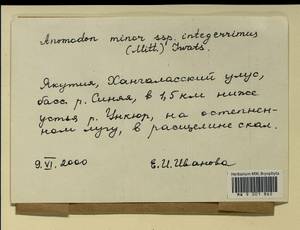 Anomodon minor ssp. integerrimus
(Mitt.) Iwats.
Якутия, Хангаласский улус,
басс. р. Синяя, в 1,5 км ниже
устья р. Ункюр, на остепнен-
ном лугу, в расщелине скал.
9.VI.2000 Е.И. Иванова
Herbarium MW, Bryophyta